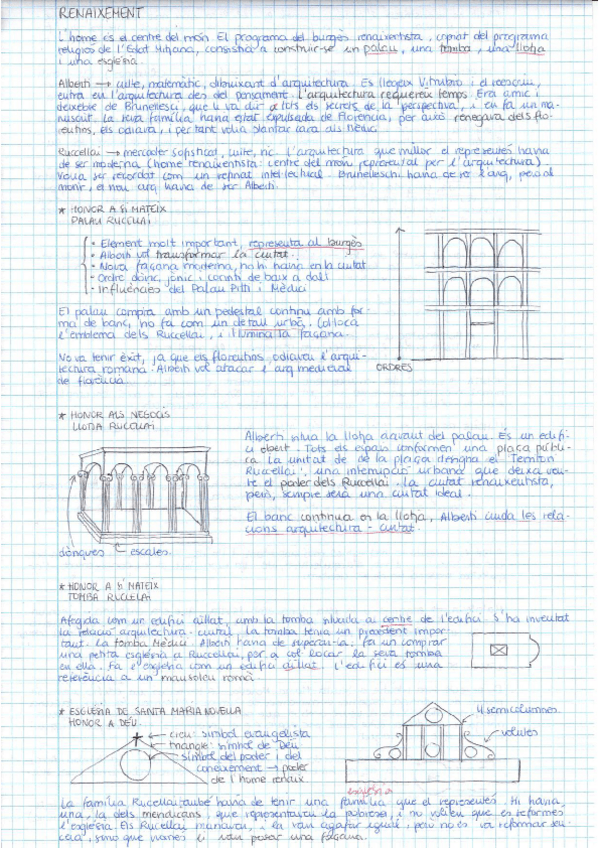 RENAIXEMENT
L'home és el centre del món. El programa del burgès renaixentista, copiat del programa
religiós de l'Edat Mitjana, consistia a construir-se un palau, una tomba, una llotja
i una església.
Alberti → culte, matemàtic, dibuixant d'arquitectura. Es llegeix Vitrubio i el reescriu,
entra en l'arquitectura des del pensament. L'arquitectura requereix temps. Era amic i
deixeble de Brunelleschi, que li va dir tots els secrets de la perspectiva, i en fa un ma-
nuscrit. La seva família havia estat expulsada de Florència, per això renegava dels flo-
rentins, els odiava, i per tant volia plantar cara als Mèdic.
Ruccellai → mercader sofisticat, culte, ric. L'arquitectura que millor el representés havia
de ser moderna (home renaixentista: centre del món representat per l'arquitectura).
Volia ser recordat com un refinat intel·lectual. Brunelleschi havia de ser l'arq, però al
morir, el nou arq havia de ser Alberti.
* HONOR A SI MATEIX
PALAU RUCELLAI
- Element molt important, representa al burgès
- Alberti vol transformar la ciutat.
- Nova façana moderna, no hi havia en la ciutat
- Ordre dòric, jònic i corinti de baix a dalt
- Influències del Palau Pitti i Mèdici
El palau compta amb un pedestal continu amb for-
ma de banc, ho fa com un detall urbà. Col·loca
l'emblema dels Ruccellai, i il·lumina la façana.
No va tenir èxit, ja que els florentins odiaven l'arqui-
tectura romana. Alberti vol atacar l'arq medieval
de florència.
ORDRES
* HONOR ALS NEGOCIS
LLOTJA RUCELLAI
Alberti situa la llotja davant del palau. És un edifi-
ci obert. Tots els espais conformen una plaça públi-
ca. La unitat de la plaça denota el "Territori
Ruccellai", una interrupció urbana que deixa veu-
re el poder dels Ruccellai. La ciutat renaixentista,
però, sempre serà una ciutat ideal.
El banc continua en la llotja, Alberti cuida les rela-
cions arquitectura - ciutat.
dòriques
escales
* HONOR A SI MATEIX
TOMBA RUCELLAI
Afegida com un edifici aïllat, amb la tomba situada al centre de l'edifici. S'ha inventat
la relació arquitectura - ciutat. La tomba tenia un precedent impor-
tant. La tomba Mèdici. Alberti havia de superar-la. Fa un comprar
una petita església a Ruccellai, per a col·locar la seva tomba
en ella. Fa l'església com un edifici aïllat. L'edifici és una
referència a un mausoleu romà.
* ESGLÉSIA DE SANTA MARIA NOVELLA
HONOR A DÉU.
creu: símbol evangelista
triangle: símbol de Déu
símbol del poder i del
coneixement → poder
de l'home renaix
4 semicolumnes
volutes
església
La família Rucellai també havia de tenir una família que el representés. Hi havia,
una, la dels mendicans, que representava la pobresa, i no volien que es reformés
l'església. Els Rucellai manaven, i la van agafar igual, però no es va reformar sen-
cera, sinó que només li van posar una façana.